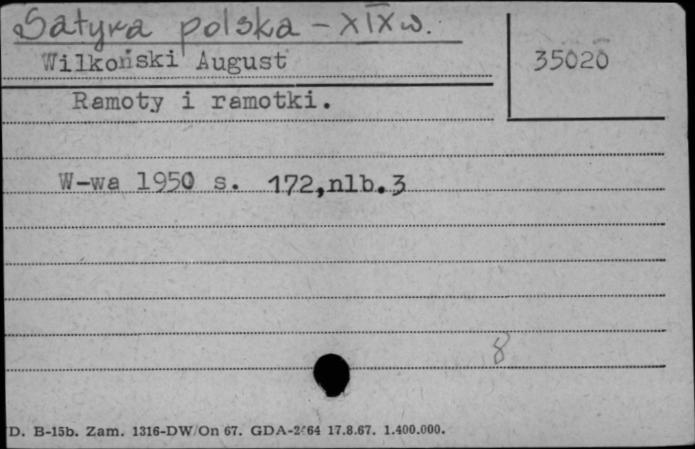 Satyra polska - XIX w.
Wilkoński August
35020
Ramoty i ramotki.
W-wa 1950 s. 172,nlb.3
8
D. B-15b. Zam. 1316-DW/On 67. GDA-2 64 17.8.67. 1.400.000.